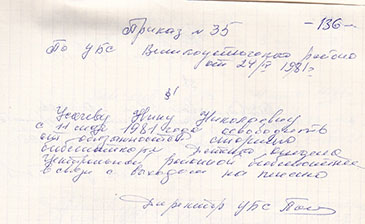 Приказ № 35 -136-
По ЦБС Великоустюгского района
от 24/IV 1981г
§1
Усачеву Нину Николаевну
с 11 мая 1981 года освободить
от обязанностей старшего
библиотекаря детского отдела
Центральной районной библиотеки
в связи с выходом на пенсию
Директор ЦБС